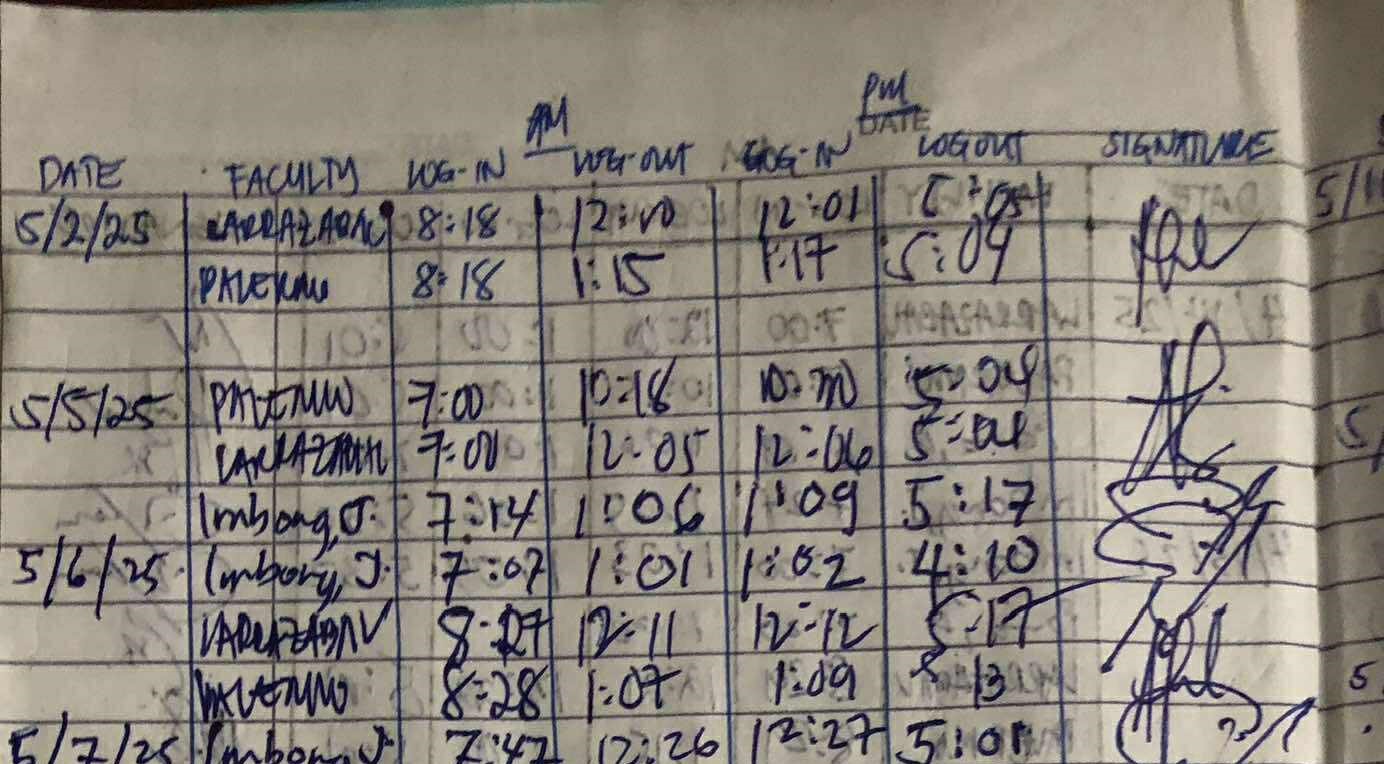 AM PM
DATE
DATE FACULTY LOG-IN LOG-OUT LOG-IN LOGOUT SIGNATURE
5/2/25 LARRAZABAL 8:18 12:00 12:01 5:05
PALERMO 8:18 1:15 1:17 5:04
5/5/25 PALERMO 7:00 10:18 10:20 5:04
LARRAZABAL 7:00 12:05 12:06 5:04
Imbong, J. 7:14 1:06 1:09 5:17
5/6/25 Imbong, J. 7:07 1:01 1:02 4:10
LARRAZABAL 8:27 12:11 12:12 5:17
PALERMO 8:28 1:07 1:09 5:13
5/7/25 Imbong, J. 7:47 12:26 12:27 5:01